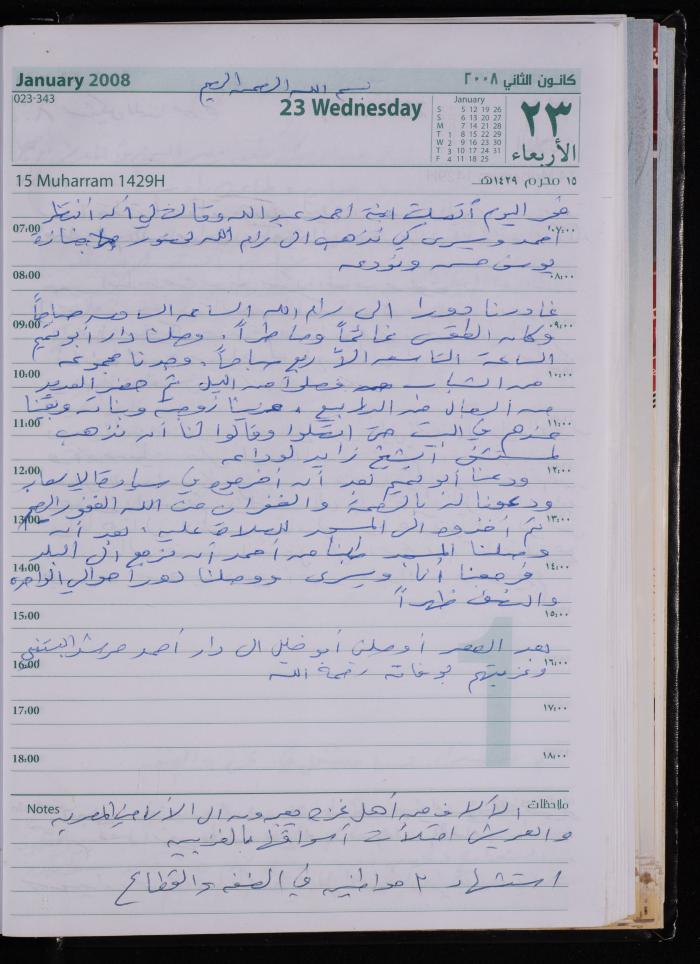 January 2008
كانون الثاني ٢٠٠٨
بسم الله الرحمن الرحيم
023-343
23 Wednesday
٢٣
الأربعاء
January
S 5 12 19 26
S 6 13 20 27
M 7 14 21 28
T 1 8 15 22 29
W 2 9 16 23 30
T 3 10 17 24 31
F 4 11 18 25
15 Muharram 1429H
١٥ محرم ١٤٢٩هـ
فجر اليوم اتصلت ابنة احمد عبد الله وقالت لي أن أنتظر
07:00 ٠٧:٠٠
احمد ويسرى كي نذهب الى رام الله لحضور جنازة
يوسف حسن ونودعه
08:00 ٠٨:٠٠
غادرنا دورا الى رام الله الساعة السادسة صباحاً
09:00 ٠٩:٠٠
وكان الطقس غائماً وماطراً. وصلنا دار أبو تميم
الساعة التاسعة الاّ ربع صباحاً. وجدنا مجموعة
10:00 ١٠:٠٠
من الشباب وصلوا من الليل ثم حضر العديد
من الرجال من الـ وبناته وبقينا
11:00 ١١:٠٠
عندهم في البيت حتى اتصلوا وقالوا لنا أن نذهب
لمستشفى الشيخ زايد لوداعه
12:00 ١٢:٠٠
ودعنا أبو تميم بعد أن أخرجوه في سيارة الإسعاف
ودعونا له بالرحمة والغفران من الله الغفور الرحيم
13:00 ١٣:٠٠
ثم أخذوه الى المسجد للصلاة عليه. بعد أن
وصلنا المسجد طلبنا من أحمد أن نرجع الى البلد
14:00 ١٤:٠٠
فرجعنا أنا ويسرى ووصلنا دورا حوالي الواحدة
والنصف ظهراً
15:00 ١٥:٠٠
بعد العصر أوصلني أبو خليل الى دار أحمد
16:00 ١٦:٠٠
وعزيتهم بوفاته رحمة الله
17:00 ١٧:٠٠
18:00 ١٨:٠٠
Notes ملاحظات
الآلاف من أهل غزة يعبرون الى الأراضي المصرية
والعريش امتلأت أسواقها بالغزيين
استشهاد ٢ مواطنين في الضفة والقطاع